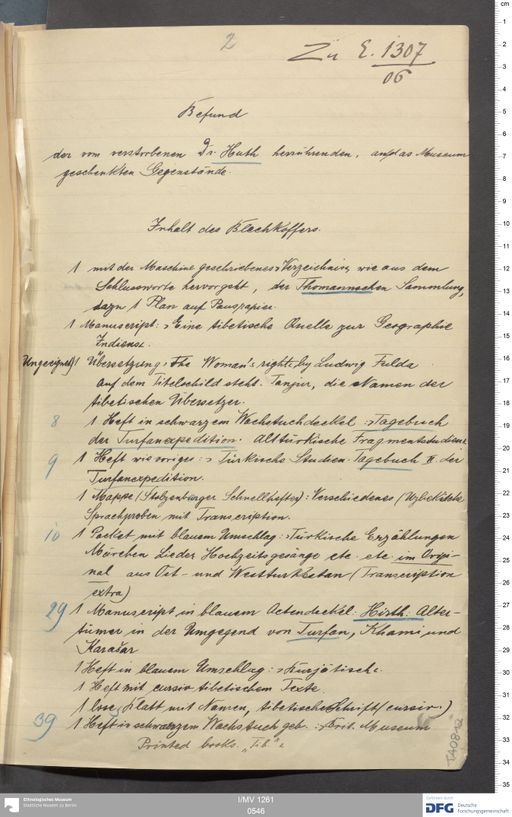 2
Zu E. 1307
06
Befund
der vom verstorbenen Dr. Huth herrührenden, an das Museum
geschenkten Gegenstände
Inhalt des Blechkoffers.
1 mit der Maschine geschriebenes Verzeichniss, wie aus dem
Schlussworte hervorgeht, der Thomannschen Sammlung,
dazu 1 Plan auf Pauspapier.
1 Manuscript: Eine tibetische Quelle zur Geographie
Indiens.
Ungeeignet 1 Übersetzung: The Woman's rights by Ludwig Fulda
auf dem Titelschild steht: Tanjur, die Namen der
tibetischen Übersetzer.
8 1 Heft in schwarzem Wachstuchdeckel: Tagebuch
der Turfanexpedition. Alttürkische Fragmentstudien
9 1 Heft wie voriges: Türkische Studien. Tagebuch II der
Turfanexpedition.
1 Mappe (Stolzenberger Schnellhefter): Verschiedenes (Uzbekische
Sprachproben mit Transcription.
10 1 Packet mit blauem Umschlag: Türkische Erzählungen
Märchen Lieder Hochzeitsgesänge etc. etc. im Origi-
nal aus Ost- und Westturkestan (Transcription
extra)
29 1 Manuscript in blauem Actendeckel: Hirth: Alter-
tümer in der Umgegend von Turfan, Khami und
Karašar
1 Heft in blauem Umschlag:
1 Heft mit cursiv tibetischem Texte.
1 loses Blatt mit Namen, tibetische Schrift (cursiv.)
39 1 Heft in schwarzem Wachstuch geb.: Brit. Museum
Printed books „Tib."
TA08-2
cm
1
2
3
4
5
6
7
8
9
10
11
12
13
14
15
16
17
18
19
20
21
22
23
24
25
26
27
28
29
30
31
32
33
34
35
Ethnologisches Museum
Staatliche Museen zu Berlin
I/MV 1261
0546
DFG Deutsche
Forschungsgemeinschaft